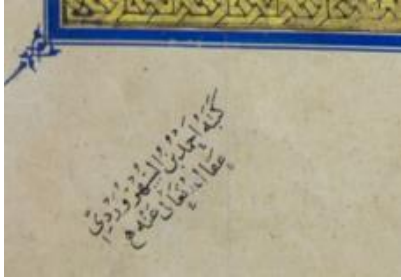 كَتَبَهُ أَحْمَدُ بْنُ السُّهْرَوَرْدِيّ
عَفَا اللهُ تَعَالَى عَنْهُ